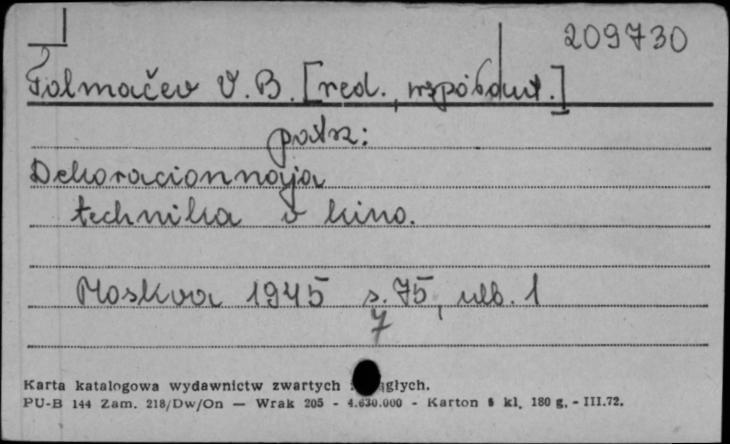 209730
Tolmačev V. B. [red., współaut.]
patrz:
Dekoracionnaja
technika v kino.
Moskva 1945 s. 75, nlb. 1
7
Karta katalogowa wydawnictw zwartych i ciągłych.
PU-B 144 Zam. 218/Dw/On — Wrak 205 - 4.630.000 - Karton kl. 180 g. - III.72.